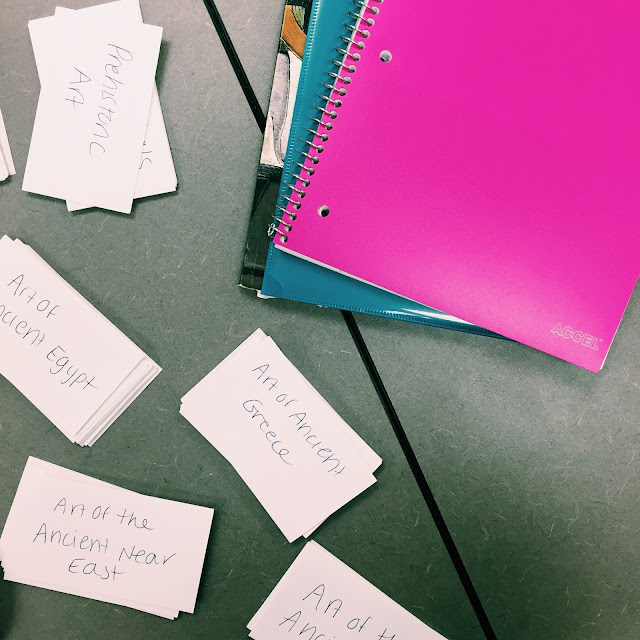 Prehistoric
Art
Art of
Ancient Egypt
Art of Ancient
Greece
Art of the
Ancient Near
East
Art of the
ACCEL